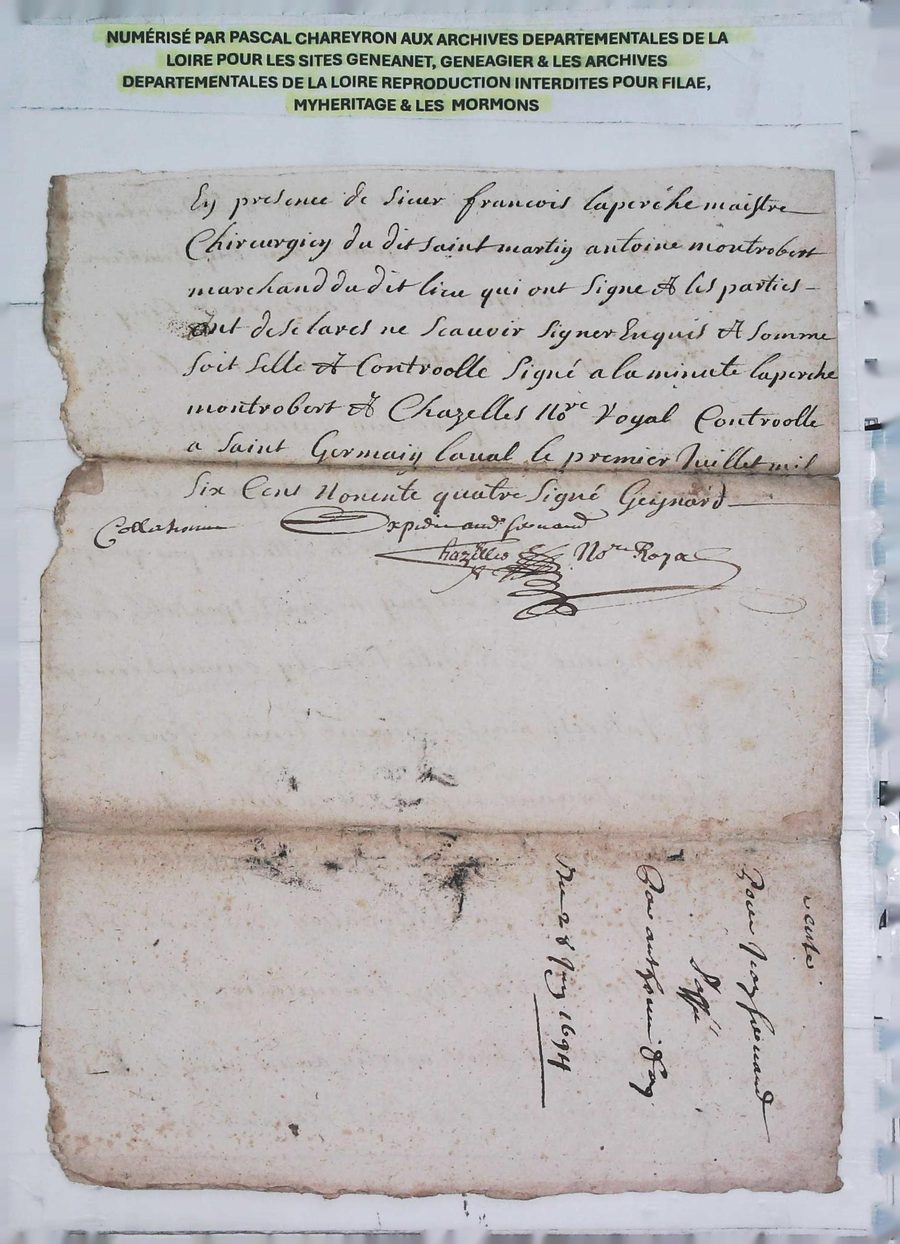 NUMÉRISÉ PAR PASCAL CHAREYRON AUX ARCHIVES DEPARTEMENTALES DE LA
LOIRE POUR LES SITES GENEANET, GENEAGIER & LES ARCHIVES
DEPARTEMENTALES DE LA LOIRE REPRODUCTION INTERDITES POUR FILAE,
MYHERITAGE & LES MORMONS
En presence de Sieur francois laperche maistre
Chirurgien du dit Saint martin antoine montrobert
marchand du dit lieu qui ont Signe & les parties
ont desclares ne Scauoir Signer Enquis & Somme
Soit Selle & Controolle Signé a la minute laperche
montrobert & Chazelles Nore Royal Controolle
a Saint Germain laual le premier Juillet mil
Six Cens Nonente quatre Signé Geynard
Collationne
Chazelles Nore Royal
Pour
1694